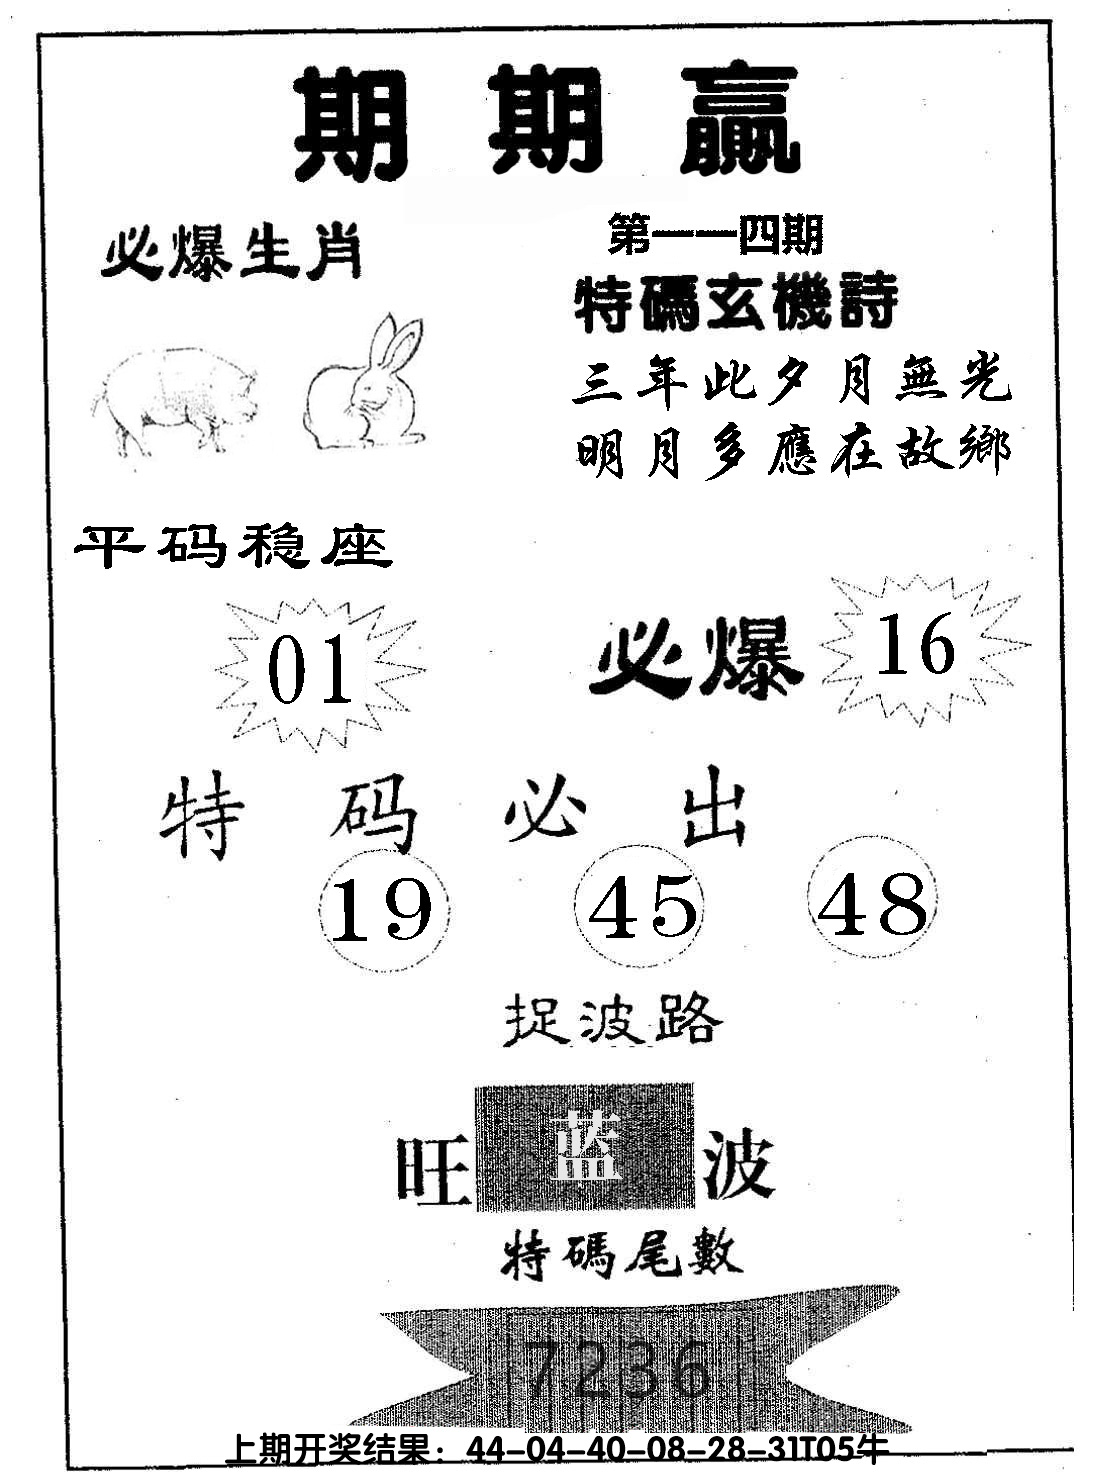 期期赢
必爆生肖
第一一四期
特碼玄機詩
三年此夕月無光
明月多應在故鄉
平码稳座
01
必爆 16
特码必出
19 45 48
捉波路
旺 蓝 波
特碼尾數
7236
上期开奖结果：44-04-40-08-28-31T05牛